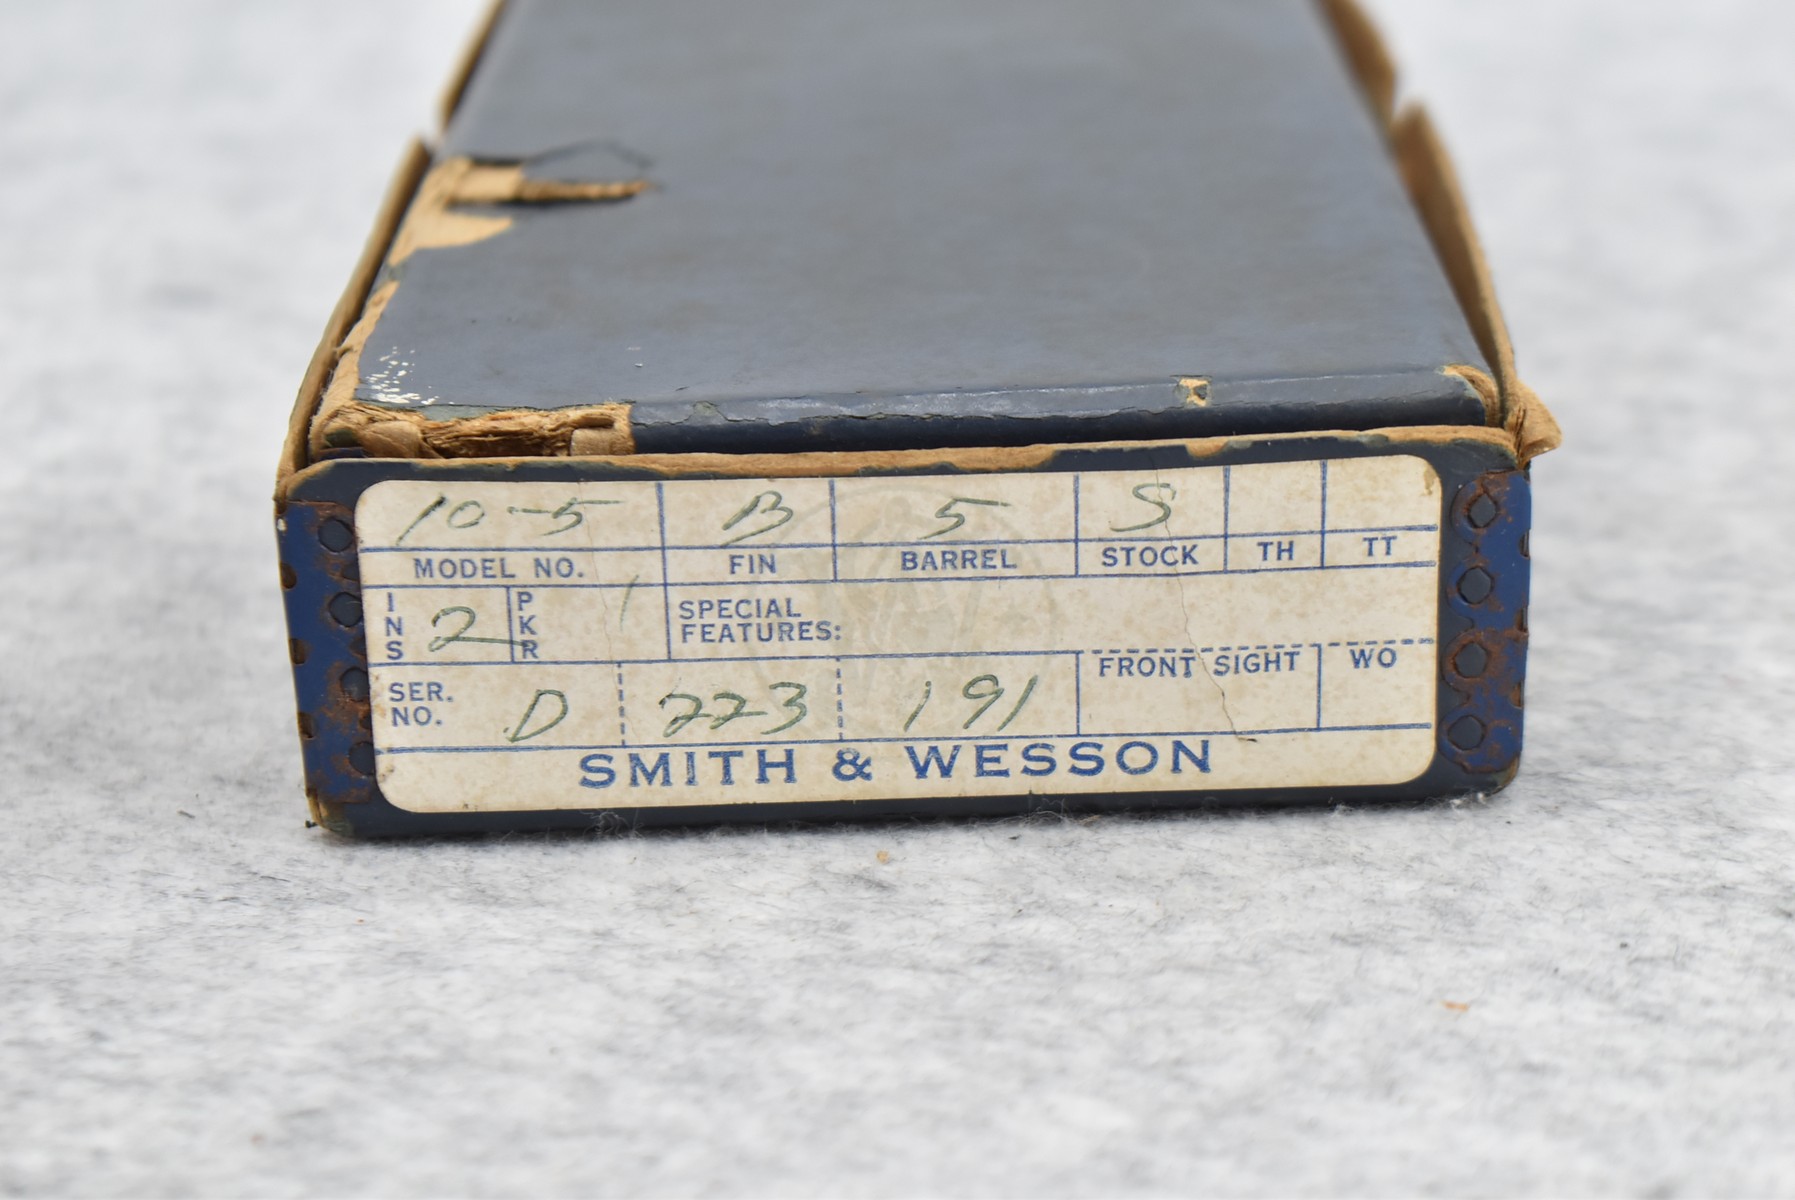 10-5 B 5 S
MODEL NO. FIN BARREL STOCK TH TT
INS 2 PKR 1 SPECIAL FEATURES:
FRONT SIGHT WO
SER. NO. D 223 191
SMITH & WESSON